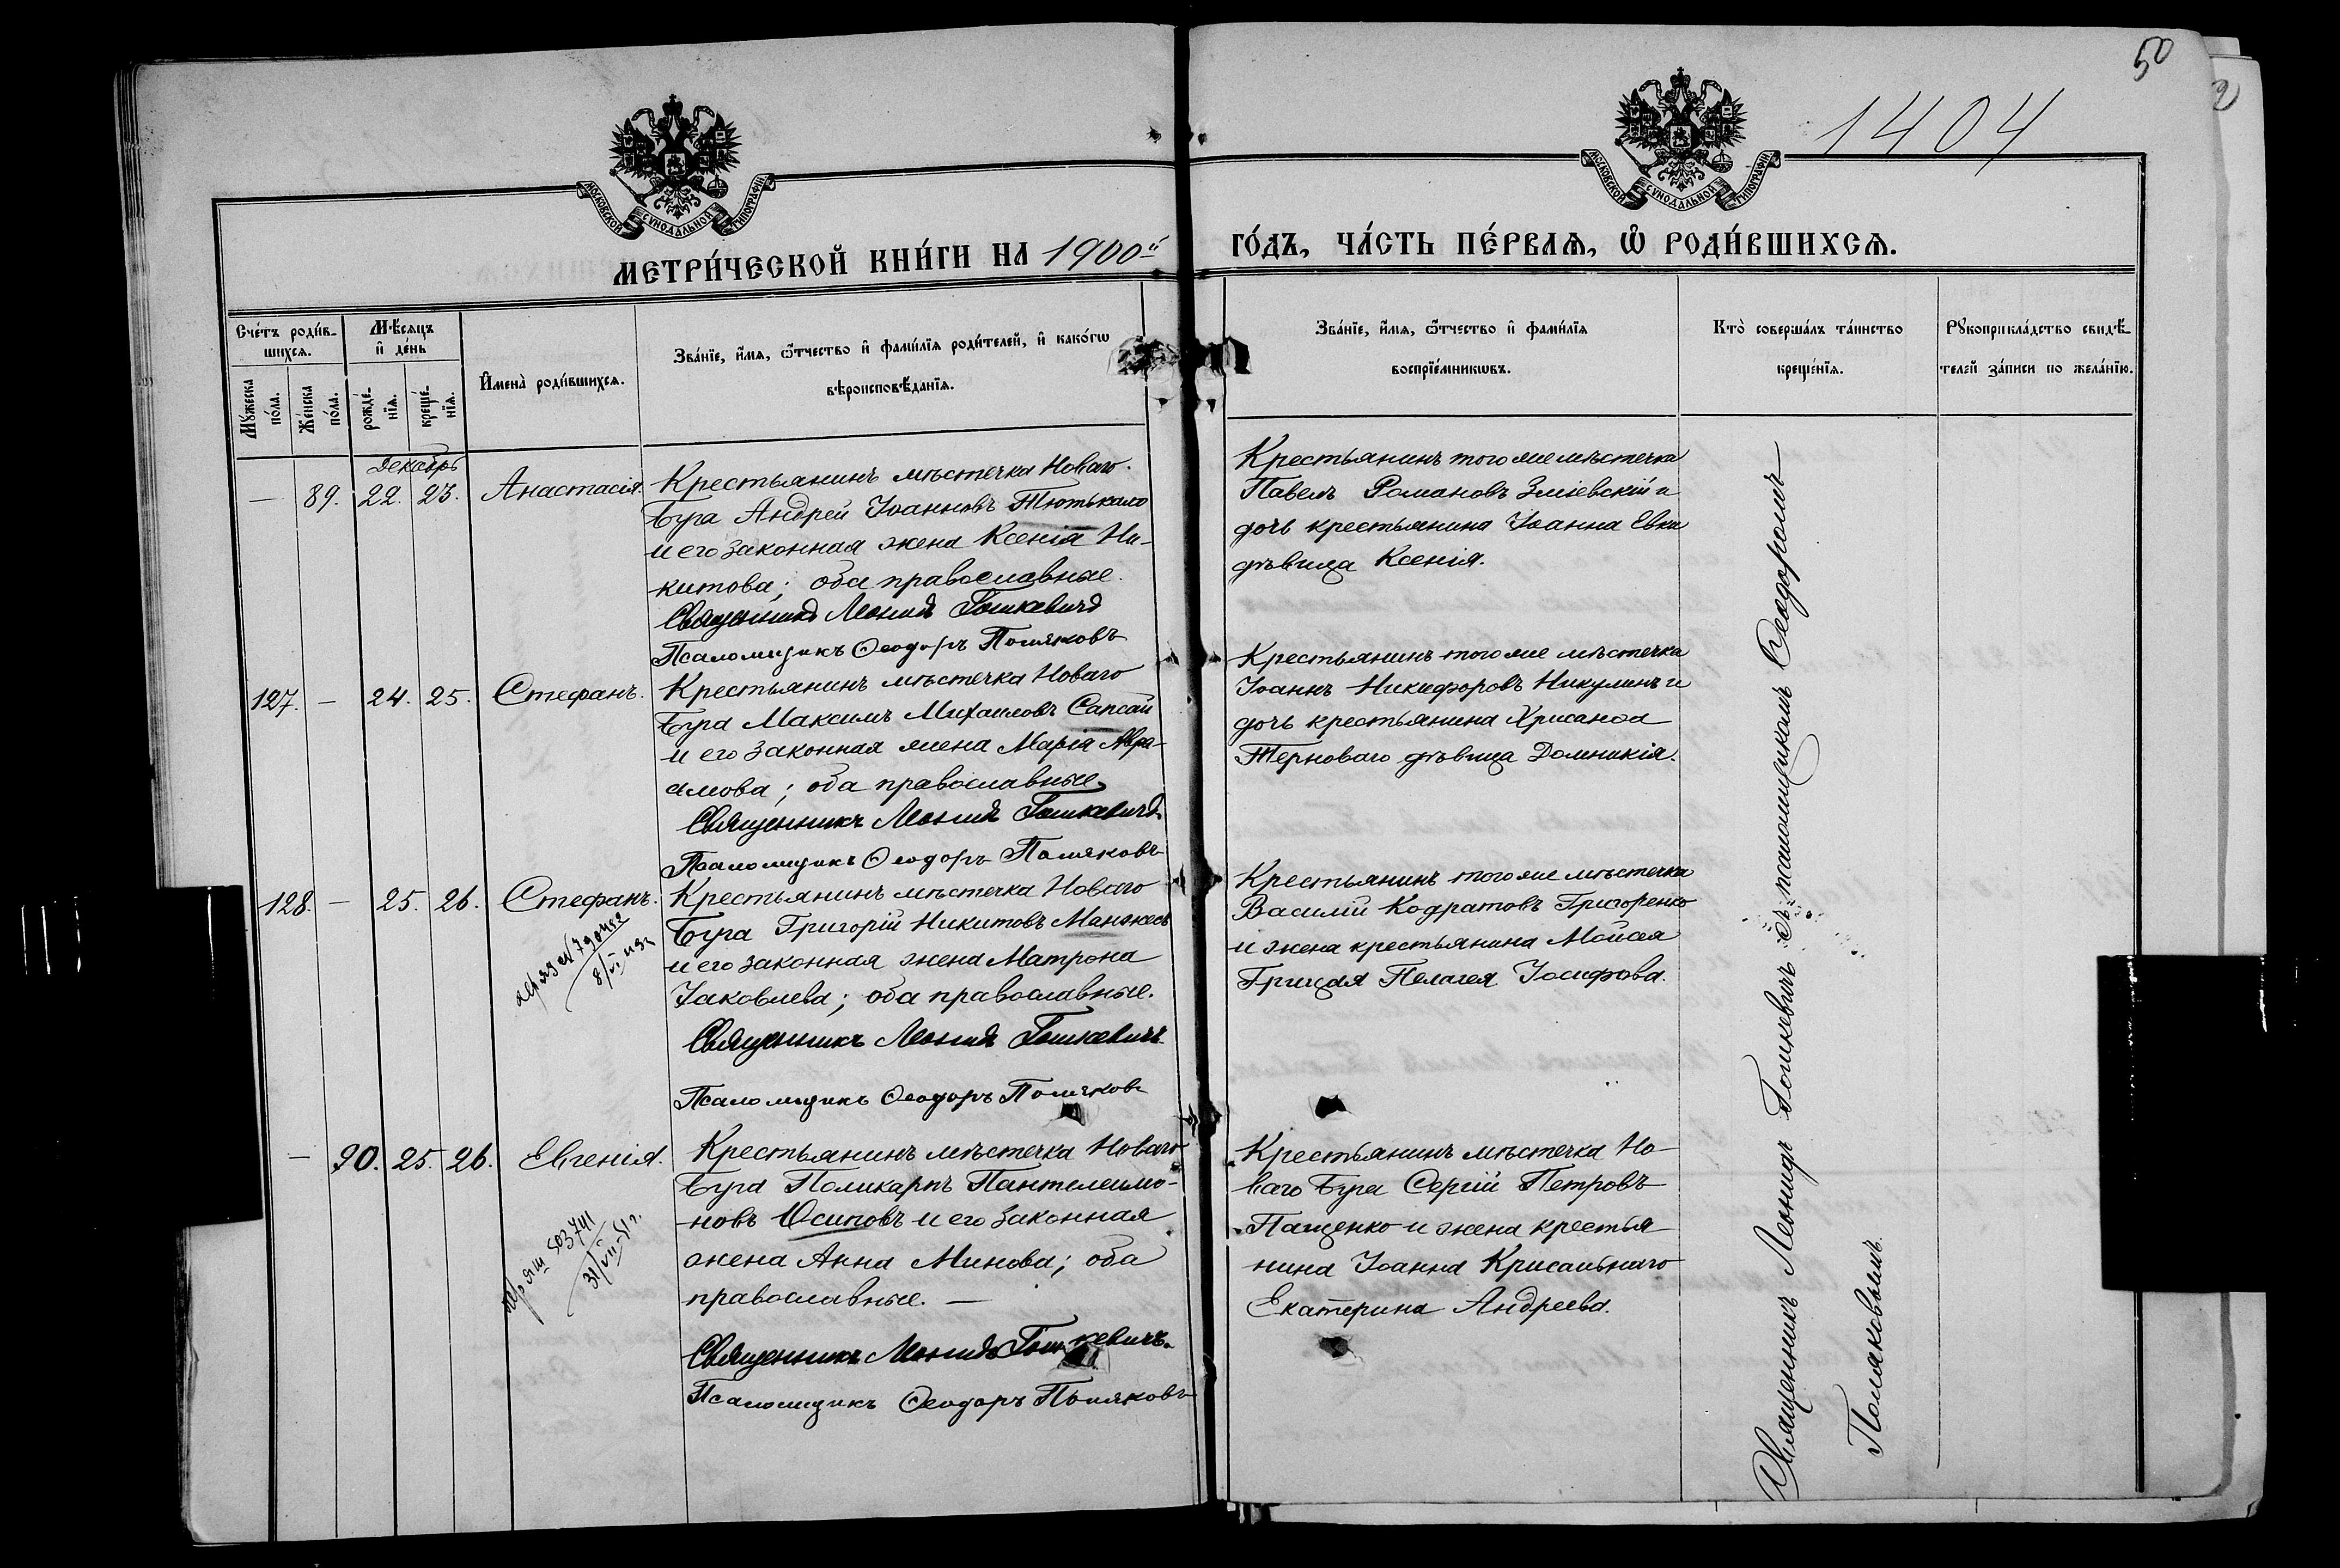 50
1404
МОСКОВСКОЙ СѴНОДАЛЬНОЙ ТИПОГРАФІИ
МОСКОВСКОЙ СѴНОДАЛЬНОЙ ТИПОГРАФІИ
МЕТРИ́ЧЕСКОЙ КНИ́ГИ НА 1900й
ГО́ДЪ, ЧА́СТЬ ПЕ́РВАѦ, Ѡ҆ РОДИ́ВШИХСѦ.
Сче́тъ роди́в-
шихсѧ.
Мꙋ́жеска
по́ла.
Же́нска
по́ла.
Мѣ́сѧцъ
и҆ де́нь
рожде́-
нїѧ.
креще́-
нїѧ.
И҆мена̀ роди́вшихсѧ.
Зва́нїе, и҆́мѧ, ѻ҆́тчество и҆ фами́лїѧ роди́телей, и҆ како́гѡ
вѣроисповѣ́данїѧ.
Зва́нїе, и҆́мѧ, ѻ҆́тчество и҆ фами́лїѧ
воспрїе́мникѡвъ.
Кто̀ соверша́лъ та́инство
креще́нїѧ.
Рꙋкоприкла́дство свидѣ́-
телей за́писи по жела́нїю.
Декабрь
— 89. 22. 23. Анастасія.
Крестьянинъ мѣстечка Новаго-
Буга Андрей Іоанновъ Тютькало
и его законная жена Ксенія Ни-
китова; оба православные.
Священникъ Леонидъ Гошкевичъ
Псаломщикъ Ѳеодоръ Поляковъ
Крестьянинъ того же мѣстечка
Павелъ Романовъ Зміевскій и
дочь крестьянина Іоанна Евка
дѣвица Ксенія.
127. — 24. 25. Стефанъ.
Крестьянинъ мѣстечка Новаго
Буга Максимъ Михаиловъ Сапсай
и его законная жена Марія Авра-
амова; оба православные.
Священникъ Леонидъ Гошкевичъ
Псаломщикъ Ѳеодоръ Поляковъ
Крестьянинъ того же мѣстечка
Іоаннъ Никифоровъ Никулинъ и
дочь крестьянина Хрисанѳа
Терноваго дѣвица Домникія.
128. — 25. 26. Стефанъ.
Крестьянинъ мѣстечка Новаго
Буга Григорій Никитовъ Манжесъ
и его законная жена Матрона
Іаковлева; оба православные.
Священникъ Леонидъ Гошкевичъ
Псаломщикъ Ѳеодоръ Поляковъ
Крестьянинъ того же мѣстечка
Василій Кодратовъ Григоренко
и жена крестьянина Мойсея
Грицая Пелагея Іосифова.
— 90. 25. 26. Евгенія.
Крестьянинъ мѣстечка Новаго
Буга Поликарпъ Пантелеимо-
новъ Осиповъ и его законная
жена Анна Минова; оба
православные. —
Священникъ Леонидъ Гошкевичъ.
Псаломщикъ Ѳеодоръ Поляковъ
503741
31/VII-51г.
Крестьянинъ мѣстечка Но-
ваго Буга Сергій Петровъ
Пащенко и жена крестья
нина Іоанна Крисальнаго
Екатерина Андреева.
Священникъ Леонидъ Гошкевичъ съ псаломщикомъ Ѳеодоромъ
Поляковымъ.